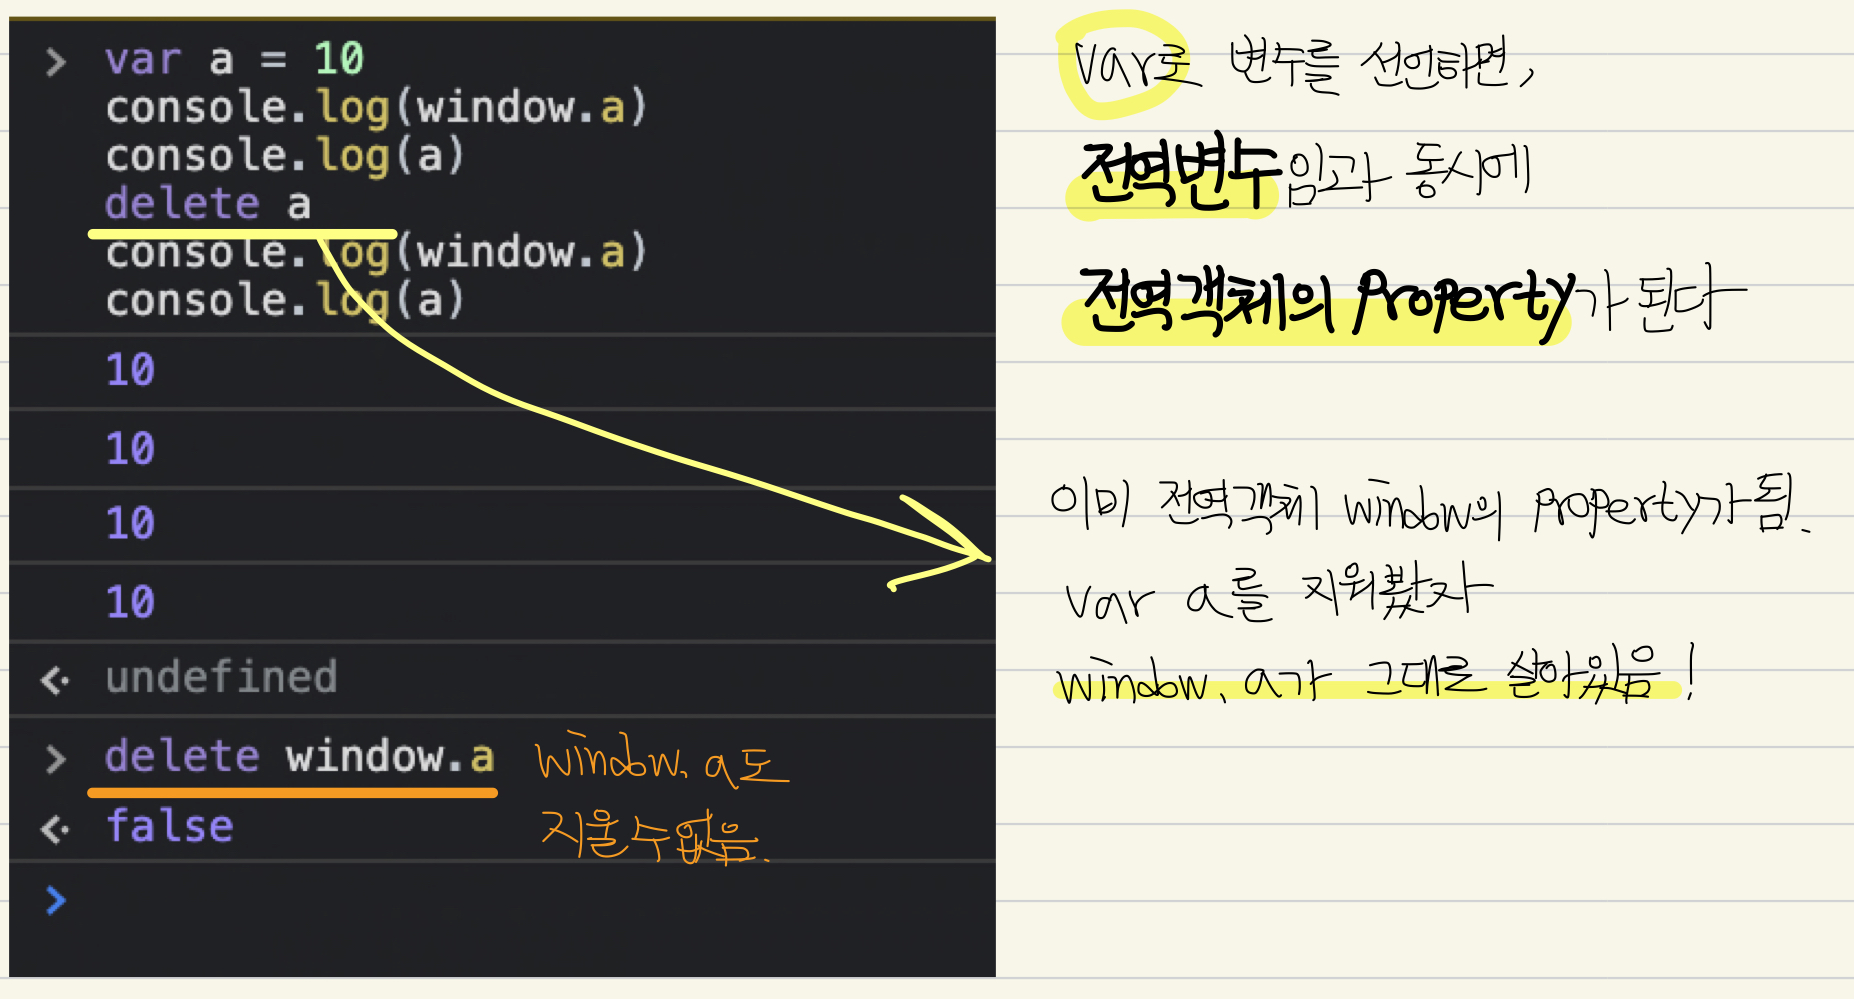 > var a = 10
console.log(window.a)
console.log(a)
delete a
console.log(window.a)
console.log(a)
10
10
10
10
undefined
> delete window.a
false
>
window.a도
지울수없음.
var로 변수를 선언하면,
전역변수임과 동시에
전역객체의 Property가 된다
이미 전역객체 window의 property가 됨.
var a를 지워봤자
window.a가 그대로 살아있음!